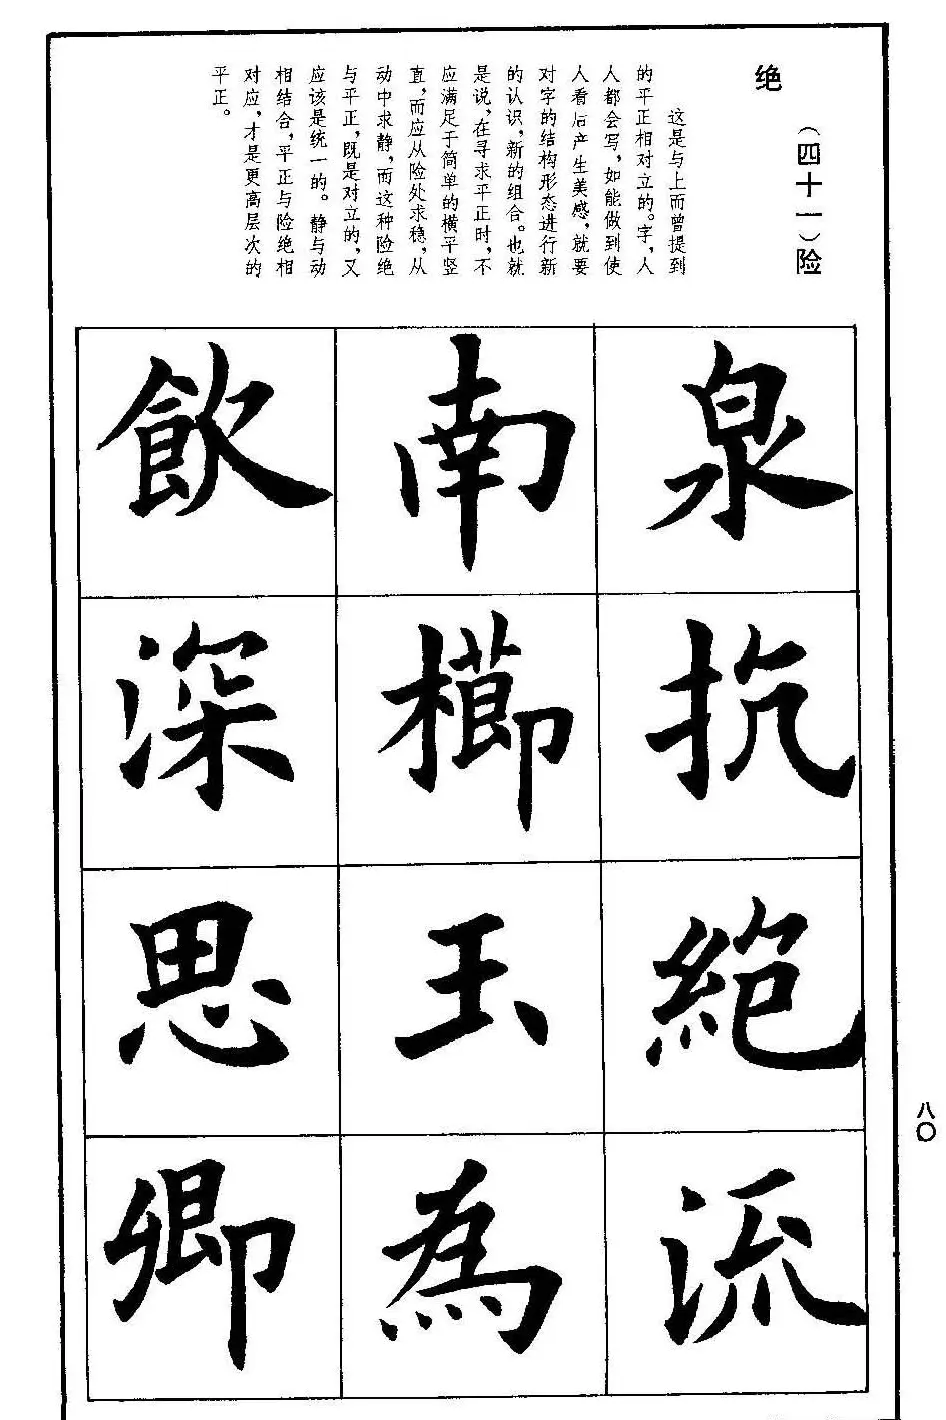 （四十一）险
绝
这是与上而曾提到
的平正相对立的。字，人
人都会写，如能做到使
人看后产生美感，就要
对字的结构形态进行新
的认识，新的组合。也就
是说，在寻求平正时，不
应满足于简单的横平竖
直，而应从险处求稳，从
动中求静，而这种险绝
与平正，既是对立的，又
应该是统一的。静与动
相结合，平正与险绝相
对应，才是更高层次的
平正。
泉抗絶流
南櫛玉為
飲深思卿
八〇